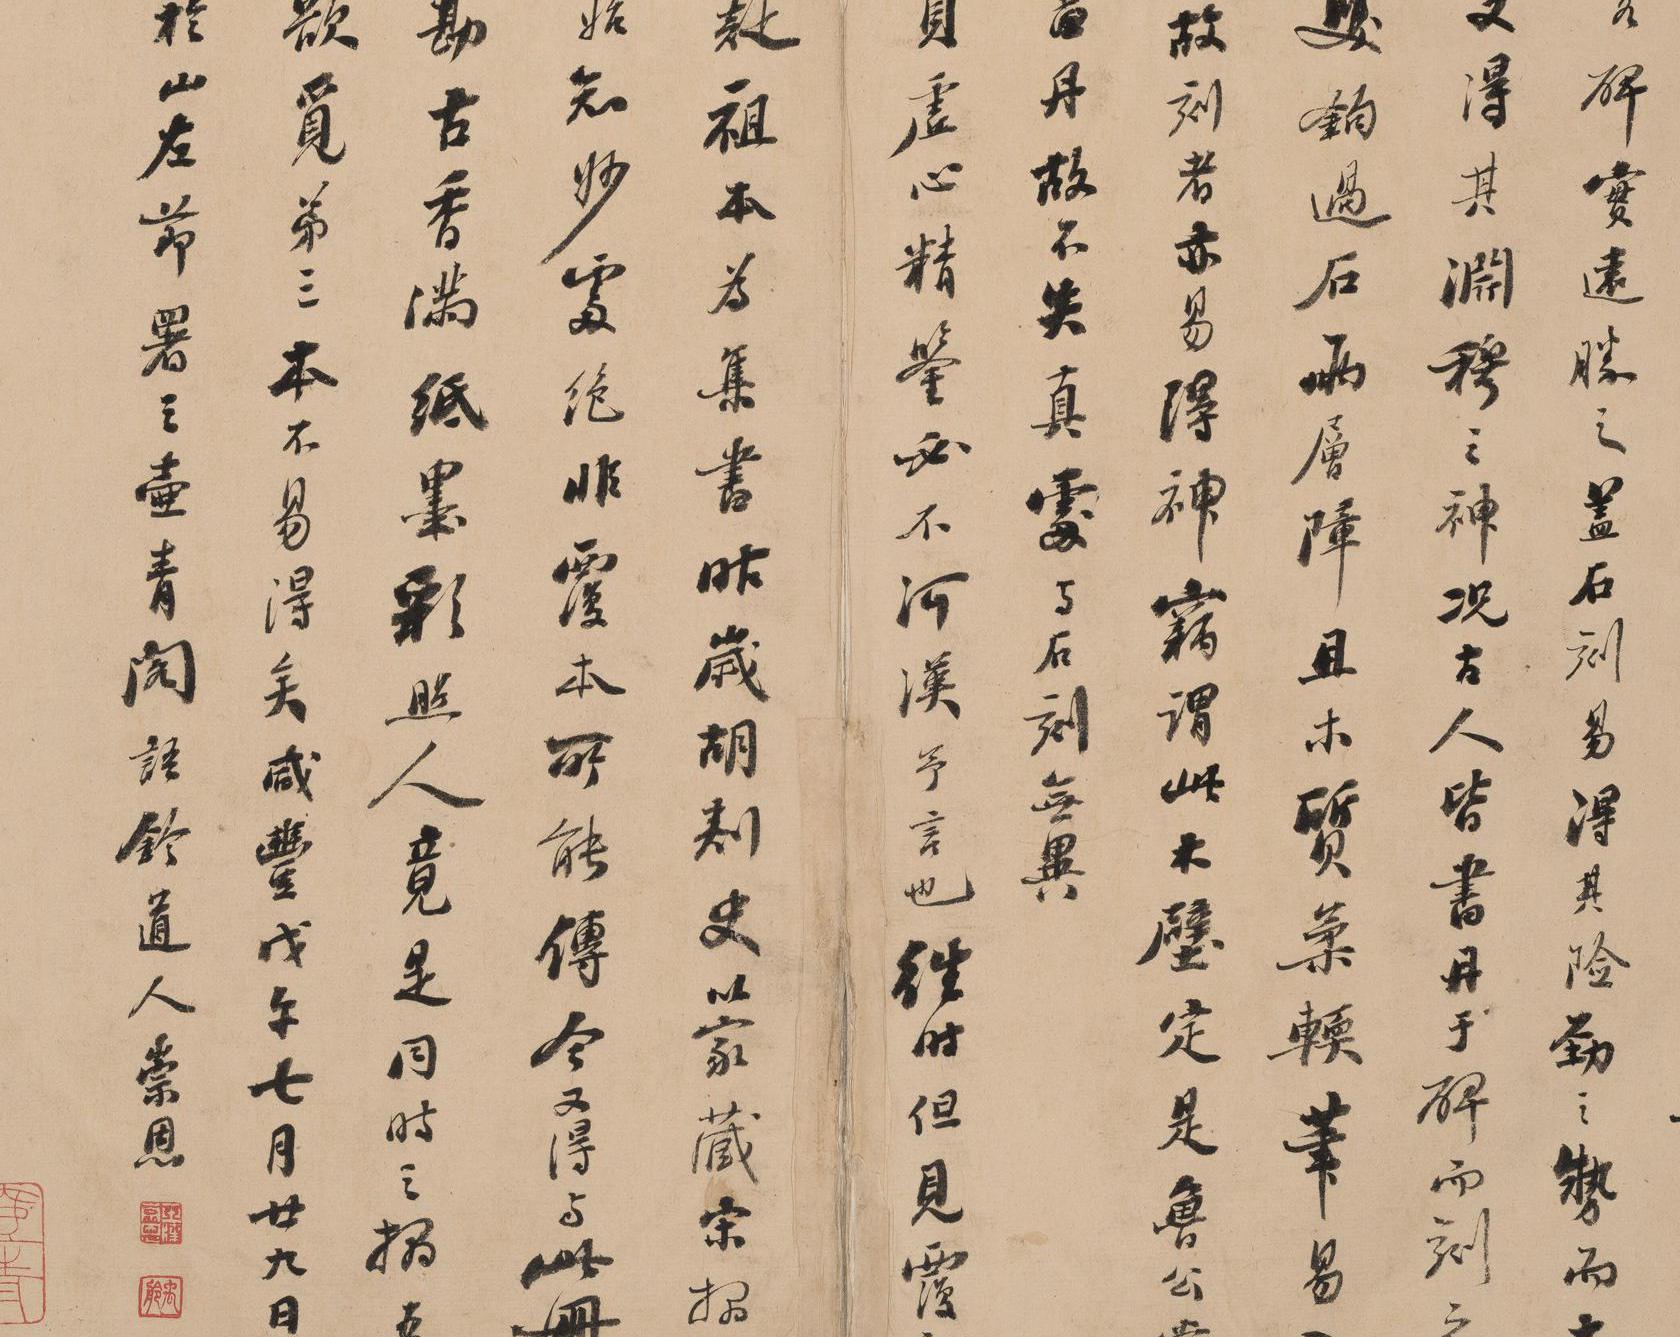 碑實遠勝之蓋石刻易得其險勁之勢而
又得其淵穆之神況古人皆書丹于碑而刻之
雙鉤過石兩層障且木質柔輭筆易
故刻者亦易得神竊謂此木壁定是魯公
書丹故不失真處与石刻無異
員虛心精鑒必不河漢予言也往时但見覆
祖本為集書昨歲胡刺史以家藏宋搨
始知妙處絕非覆本所能傳今又得与此冊
勘古香滿紙墨彩照人竟是同時之搨
欲覓弟三本不易得矣咸豐戊午七月廿九日
於山左節署之壺青閣語鈴道人崇恩